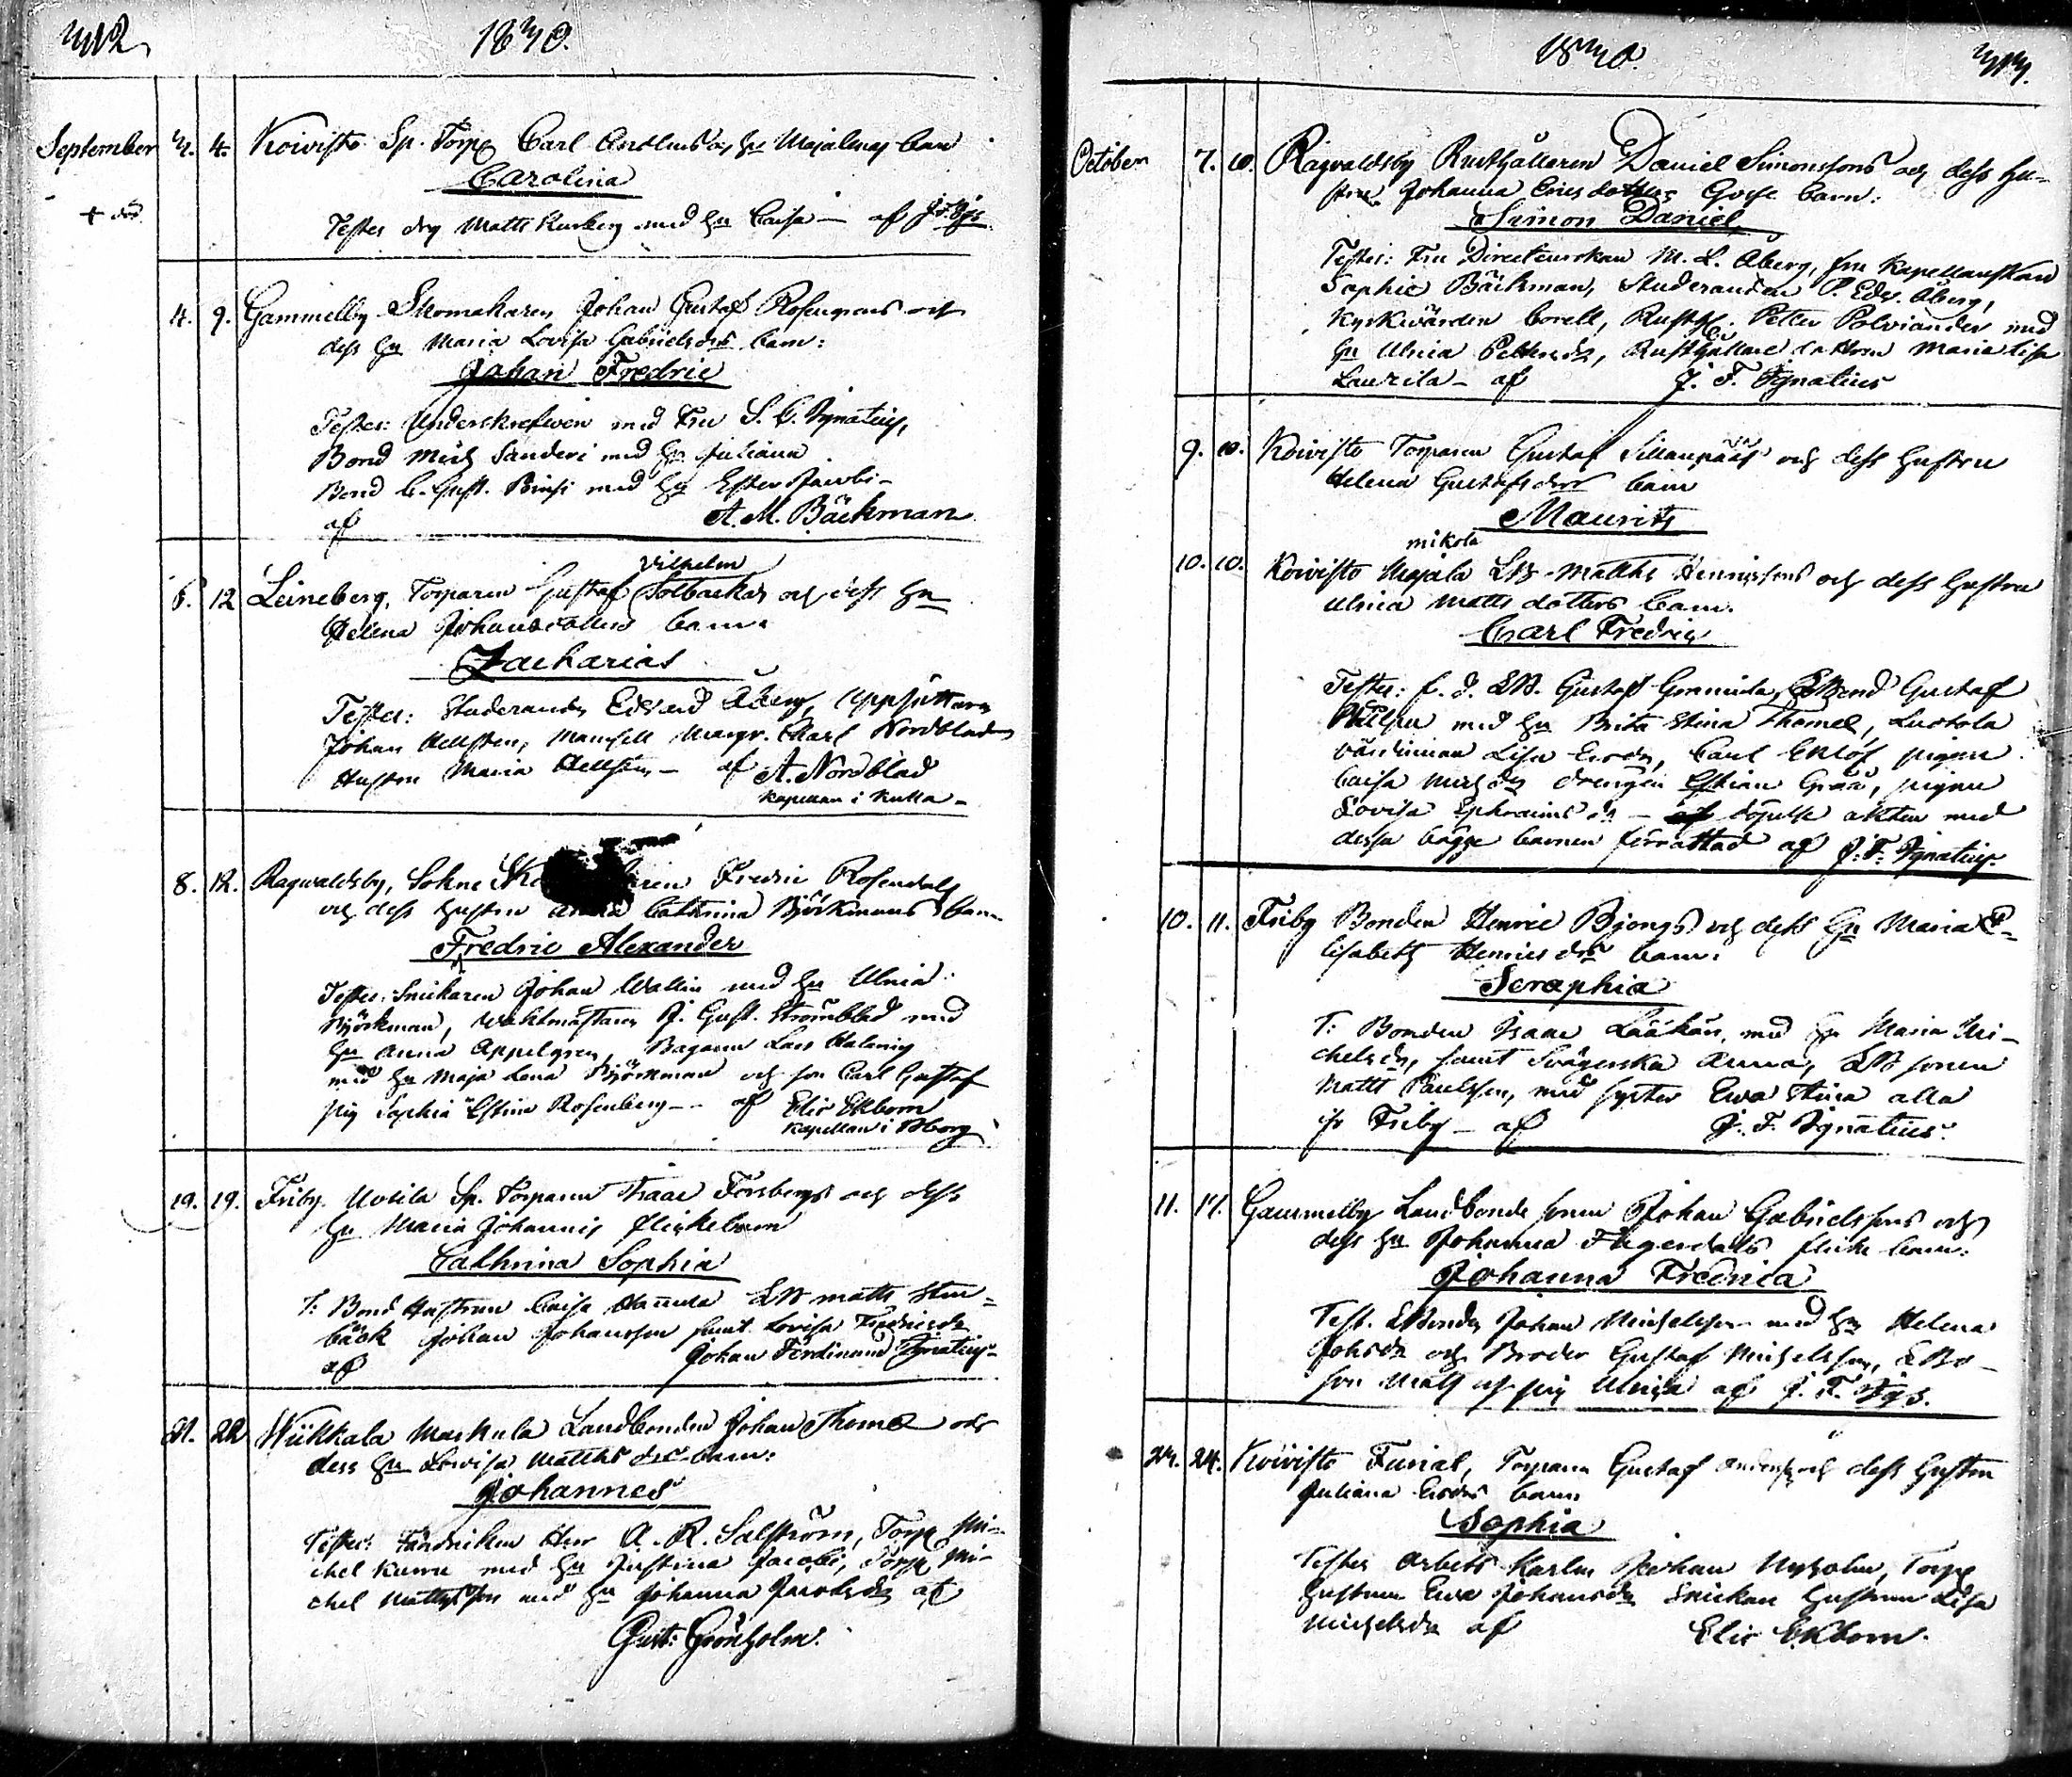 312
1830.
September 3. 4. Koivisto Sp. Torp Carl och hu barn
Carolina
+ död
Testes drg Matts med hu Caisa — af J. F. Igs
4. 9. Gammelby Skomakaren Johan Gustaf Rosengrens och
dess hu Maria Lovisa Gabrielsdrs barn:
Johan Fredric
Testes: Underskrefwen med Fru S. C. Ignatius,
Bond Mich Sanderi med hu Juliana
Bond C. Gust. med hu Ester Jacobi —
af A. M. Bäckman
vilhelm
6. 12 Leineberg, Torparen Gustaf Solbackas och dess hu
Helena Johansdotters barn.
Zacharias
Testes: Studeranden Edvard Åberg, Uppsittaren
Johan Hellsten, Mamsell Margr. Charl Nordblad
Hustru Maria Hellsten — af A. Nordblad
Kapellan i Kulla —
8. 12. Ragwaldsby, Sokne Fredric Rosendals
och dess hustru Anna Cathrina Björkmans barn
Fredric Alexander
Testes: Snickaren Johan Wallin med hu Ulrica
Björkman, Waktmästaren J. Gust. Strömblad med
hu Anna Appelgren, Bagaren Lars
med hu Maja Lena Björkman och son Carl Gustaf
pig Sophia Estina Rosenberg — af Elis Ekbom
Kapellan i
19. 19. Friby Sp. Torparen Isaac Forsbergs och dess
hu Maria Johannis flickebarn
Cathrina Sophia
T: Bond Hustrun Caisa LB Matts Sten=
bäck Johan Johansson samt Lovisa Fredricsdr
af Johan Ferdinand Ignatius —
21. 22 Wiikkala Markula Landbonden Johan Thomæ och
dess hu Lovisa Matths dr barn:
Johannes
Testes: Fändriken Herr A. R. Salström, Torp Mi-
chel med hu Justina Jacobi, Torp Mi-
chel Mattsson med hu Johanna Jacobsdr af
Gust: Grönholm.
1830.
313.
October 7. 10. Ragvaldsby Rusthållaren Daniel Simonssons och dess hu=
strus Johanna Ericsdotters Gosse barn:
Simon Daniel
Testes: Fru Directeurskan M. L. Åberg, fru Kapellanskan
Sophie Bäckman, Studeranden P. Edv. Åberg,
Kyrkvärden Corell, Rusth: Petter Polviander med
hu Ulrica Pettersdr, Rusthållare dottren Maria Lisa
Laurila — af J. F. Ignatius
9. 10. Koivisto Torparen Gustaf Sillanpääs och dess hustru
Helena Gustafsdrs barn
Maurits
mikola
10. 10. Koivisto Majala LB Matths Henricssons och dess hustru
Ulrica Matts dotters barn.
Carl Fredric
Testes: f. d. LB. Gustaf LBond Gustaf
med hu Brita Stina Thomæ,
värdinnan Lisa Ersdr, Carl Eklöf pigan
Caisa Michsdr drengen Grää, pigan
Lovisa Ephraims dr — döpelse akten med
dessa bägge barnen förrättad af J. F. Ignatius
10. 11. Friby Bonden Henric Bjongs och dess hu Maria E=
lisabeth Henricsdrs barn:
Seraphia
T: Bonden Isaac Lääkäri, med hu Maria Mi-
chelsdr, samt Svägerska Anna, LB sonen
Matts Paulsson, med syster Ewa Stina alla
fr Friby — af J. F. Ignatius.
11. 14. Gammelby Landbonde sonen Johan Gabrielssons och
dess hu Johanna Fagerdals flicke barn:
Johanna Fredrica
Test. LBonden Johan Michelsson med hu Helena
Johsdr och Broder Gustaf Michelsson, LBo-
son Matts och pig Ulrica af J. F. Igs.
24. 24. Koivisto Torparen Gustaf Anderss och dess hustru
Juliana Ersdrs barn
Sophia
Testes Arbets Karlen Johan Nyholm, Torp
hustrun Ewa Johansdr Snickare hustrun Lisa
Michelsdr af Elis Ekbom.